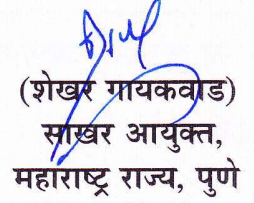 (शेखर गायकवाड)
साखर आयुक्त,
महाराष्ट्र राज्य, पुणे